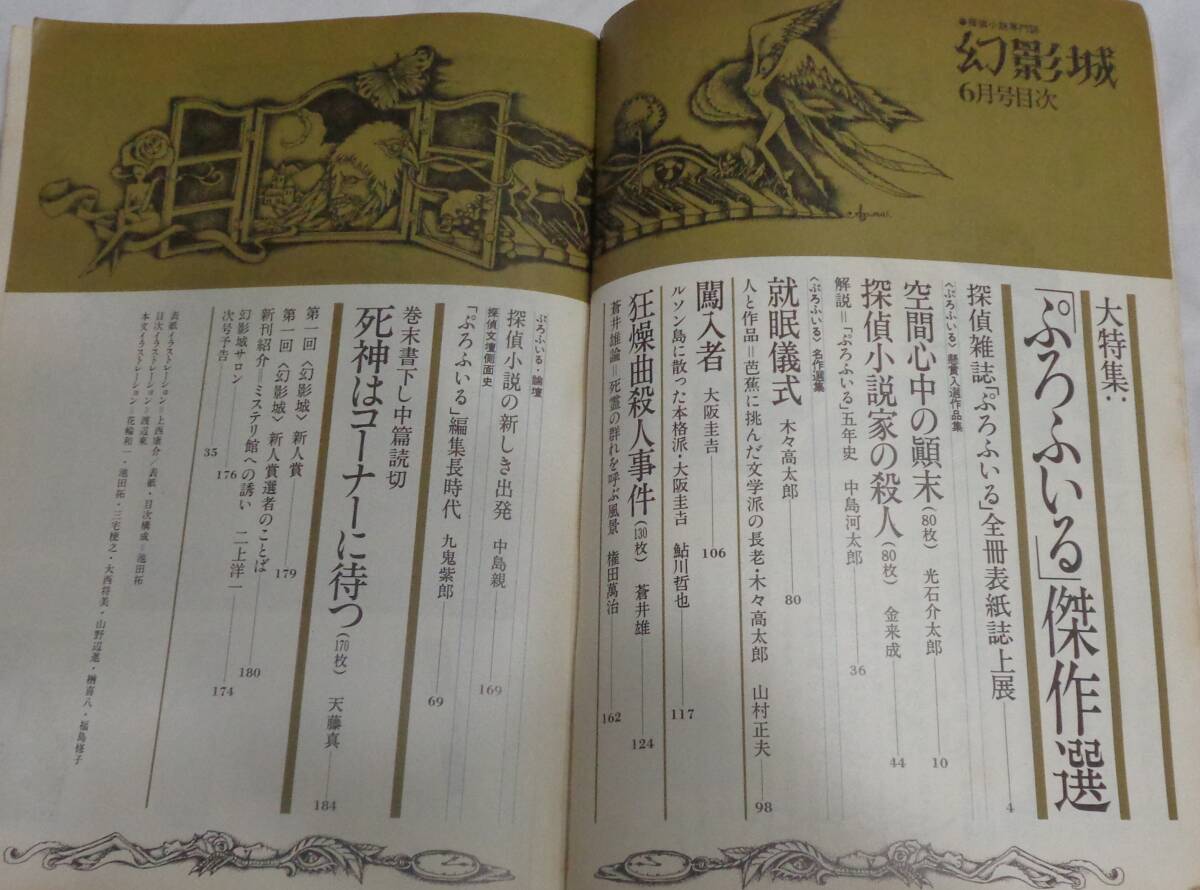 ●探偵小説専門誌
幻影城
6月号目次
大特集：
「ぷろふいる」傑作選
探偵雑誌「ぷろふいる」全冊表紙誌上展 4
〈ぷろふいる〉懸賞入選作品集
空間心中の顚末(80枚) 光石介太郎 10
探偵小説家の殺人(80枚) 金来成 44
解説＝「ぷろふいる」五年史 中島河太郎 36
〈ぷろふいる〉名作選集
就眠儀式 木々高太郎 80
人と作品＝芭蕉に挑んだ文学派の長老・木々高太郎 山村正夫 98
闖入者 大阪圭吉 106
ルソン島に散った本格派・大阪圭吉 鮎川哲也 117
狂燥曲殺人事件(130枚) 蒼井雄 124
蒼井雄論＝死霊の群れを呼ぶ風景 権田萬治 162
ぷろふいる・論壇
探偵小説の新しき出発 中島親 169
探偵文壇側面史
「ぷろふいる」編集長時代 九鬼紫郎 69
巻末書下し中篇読切
死神はコーナーに待つ(170枚) 天藤真 184
第一回〈幻影城〉新人賞 179
第一回〈幻影城〉新人賞選者のことば 180
新刊紹介＝ミステリ館への誘い 二上洋一 174
幻影城サロン 176
次号予告 35
表紙イラストレーション＝上西康介／表紙・目次構成＝池田拓
目次イラストレーション＝渡辺東
本文イラストレーション＝花輪和一・池田拓・三宅榛之・大西将美・山野辺進・楢喜八・福島修子